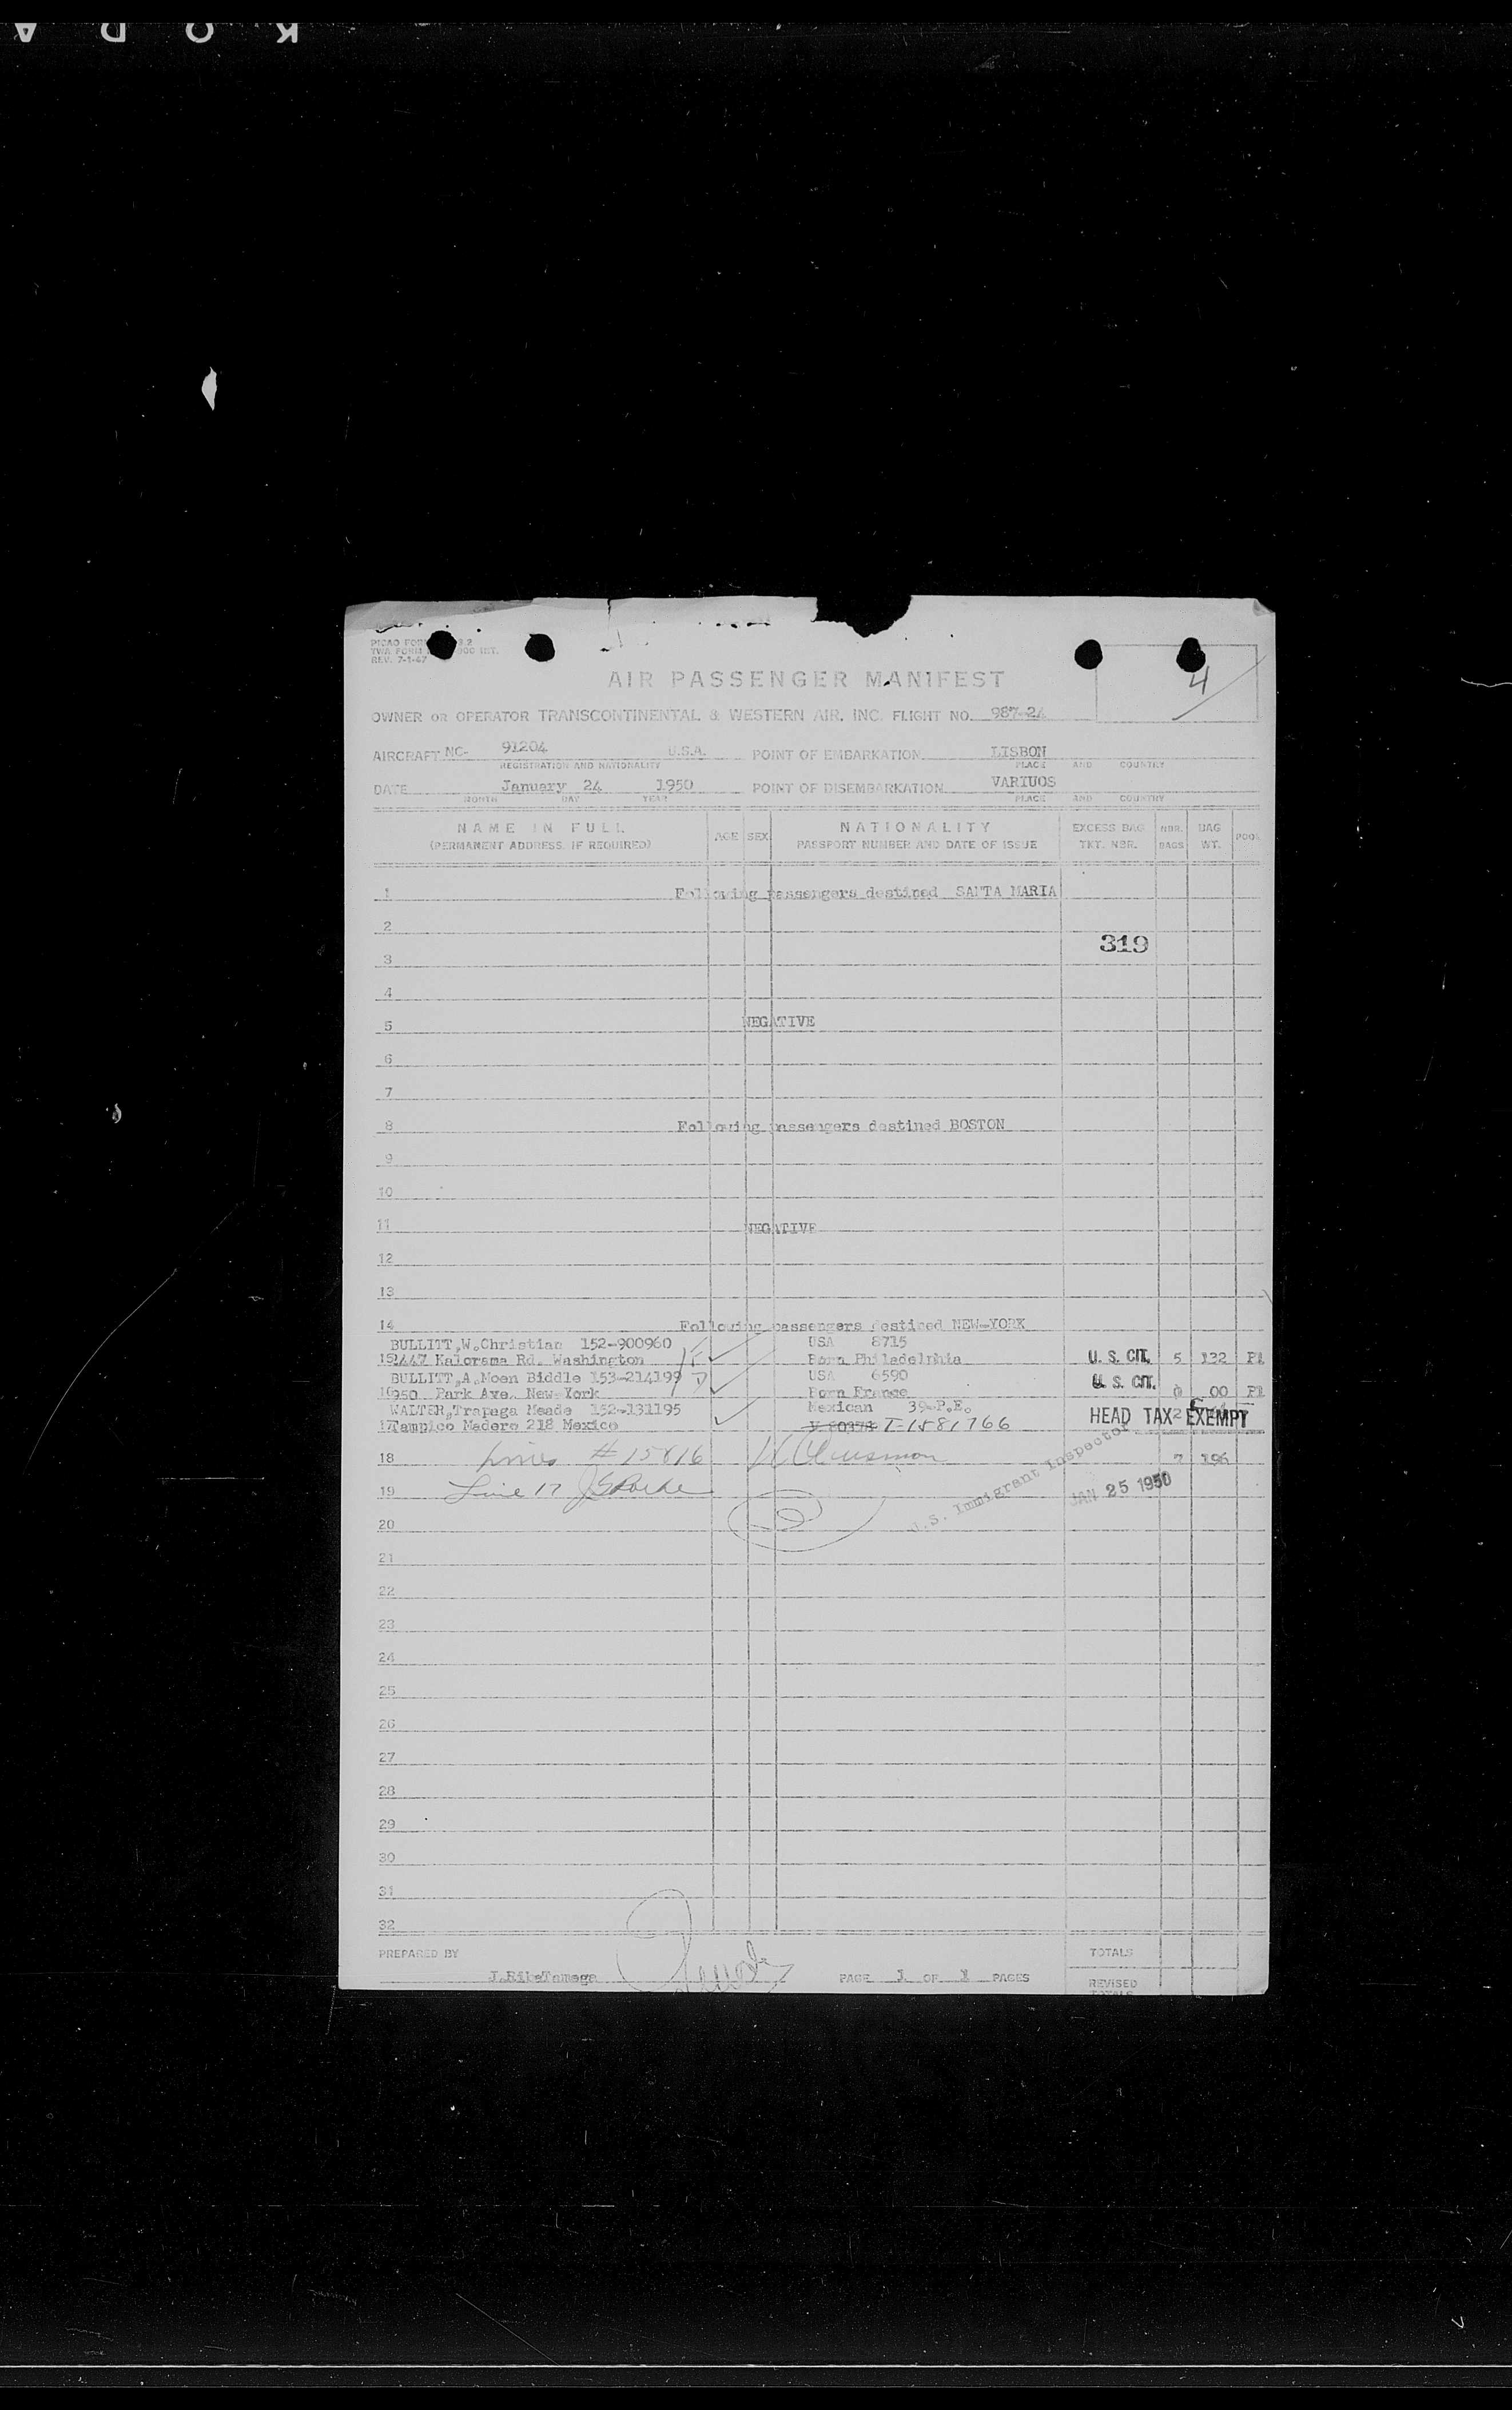 KODA
PICAO FORM 3.2
TWA FORM 000 INT.
REV. 7-1-47
4
AIR PASSENGER MANIFEST
OWNER OR OPERATOR TRANSCONTINENTAL & WESTERN AIR, INC. FLIGHT NO. 987-24
AIRCRAFT NC- 91204 U.S.A. POINT OF EMBARKATION LISBON
REGISTRATION AND NATIONALITY PLACE AND COUNTRY
DATE January 24 1950 POINT OF DISEMBARKATION VARIUOS
MONTH DAY YEAR PLACE AND COUNTRY
NAME IN FULL AGE SEX NATIONALITY EXCESS BAG NBR. BAG POOL
(PERMANENT ADDRESS, IF REQUIRED) PASSPORT NUMBER AND DATE OF ISSUE TKT. NBR. BAGS WT.
1 Following passengers destined SANTA MARIA
2
319
3
4
5 NEGATIVE
6
7
8 Following passengers destined BOSTON
9
10
11 NEGATIVE
12
13
14 Following passengers destined NEW-YORK
BULLITT,W.Christian 152-900960 USA 8715
15 2447 Kalorama Rd. Washington Born Philadelphia U. S. CIT. 5 132 P1
BULLITT,A.Moen Biddle 153-214199 USA 6590
16 950 Park Axe. New-York Born France U. S. CIT. 0 00 P1
WALTER,Trapaga Meade 152-131195 Mexican 39-P.E.
17 Tampico Madero 218 Mexico V 80374 I-1581766 HEAD TAX 2 EXEMPT
18 Lines # 15 & 16 7 196
19 Line 17
U.S. Immigrant Inspector
JAN 25 1950
20
21
22
23
24
25
26
27
28
29
30
31
32
PREPARED BY TOTALS
J.RikeTamega PAGE 1 OF 1 PAGES REVISED
TOTALS